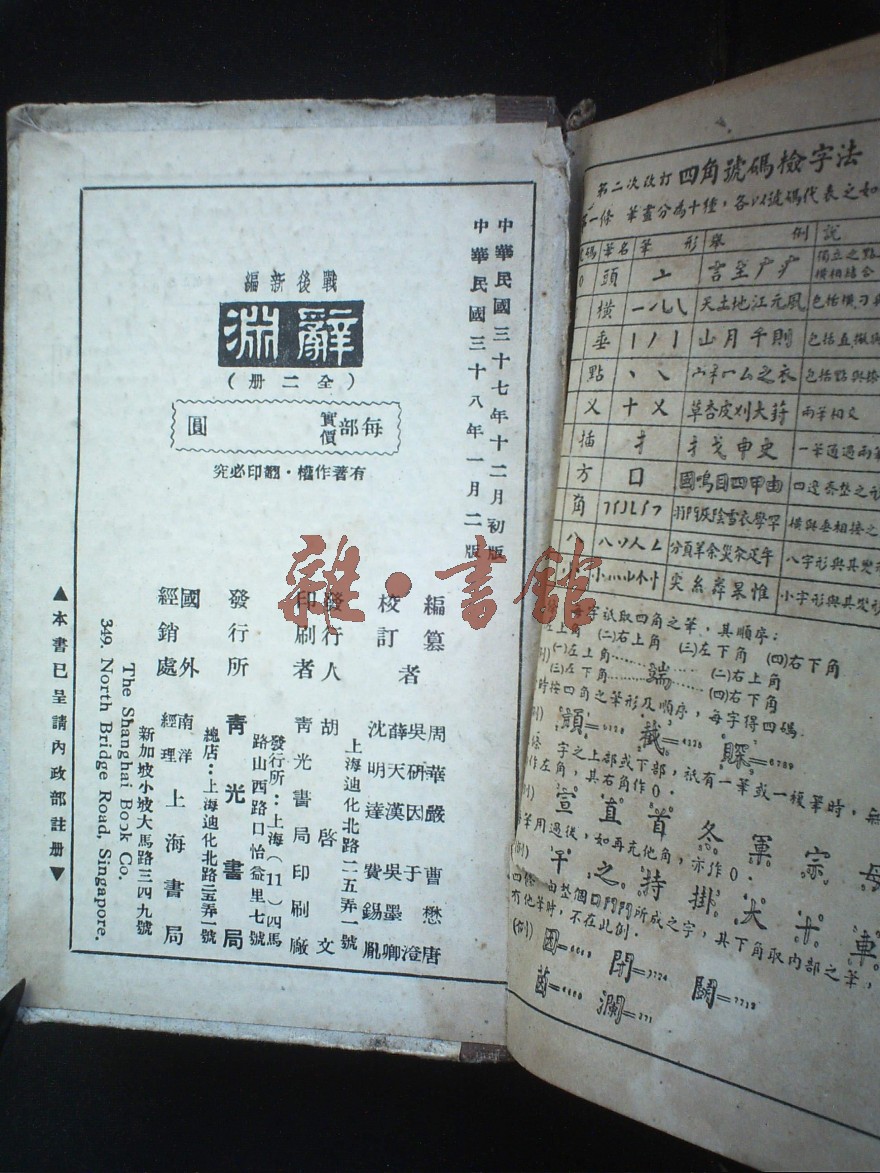 中華民國三十七年十二月初版
中華民國三十八年一月二版
戰後新編
辭淵
(全二册)
每部實價 圓
有著作權·翻印必究
編纂者 周華嚴 曹懋唐
吳研因 于澄
校訂者 薛天漢 吳墨卿
沈明達 費錫胤
發行人 胡啓文
上海迪化北路二五弄一號
印刷者 靑光書局印刷廠
發行所 靑光書局
發行所:上海(11)四馬
路山西路口怡益里七號
總店:上海迪化北路二五弄一號
國外經銷處 南洋經理 上海書局
新加坡小坡大馬路三四九號
The Shanghai Book Co,
349, North Bridge Road, Singapore.
▲本書已呈請內政部註册▼
雜·書館
第二次改訂 四角號碼檢字法
第一條 筆畫分為十種,各以號碼代表之如
號碼 筆名 筆形 舉例 說
0 頭 亠 言主广疒 獨立之點 橫相結合
橫 一 天土地江元風 包括橫刁與
垂 山月千則 包括直撇與
點 丶 之衣 包括點與捺
义 十乂 草杏皮刈大葑 兩筆相交
插 扌 扌戈申史 一筆通過兩筆
方 口 國鳴目四甲由 四邊齊整之形
角 陰雪衣學罕 橫與垂相接之
八 八 分頁羊余災氽疋午 八字形與其變形
小 小 尖糸舜杲惟 小字形與其變形
每字祇取四角之筆,其順序:
(一)左上角 (二)右上角 (三)左下角 (四)右下角
(例) (一)左上角 (二)右上角
端
(三)左下角 (四)右下角
時按四角之筆形及順序,每字得四碼
(例) 顗 截
字之上部或下部,祇有一筆或一複筆時,無
作左角,其右角作0.
(例) 宣 直 首 冬 軍 宗 母
筆用過後,如再充他角,亦作0.
(例) 干 之 持 掛 大 十 車
由整個囗門鬥所成之字,其下角取內部之筆,
有他筆時,不在此例.
(例) 因 閉 鬭
茵 瀾